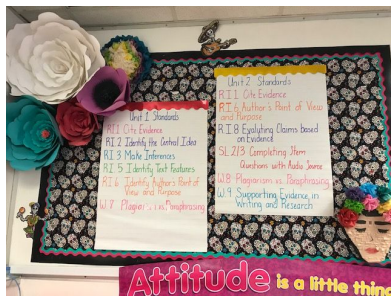 Unit 1 Standards
RI.1 Cite Evidence
RI.2 Identify the Central Idea
RI.3 Make Inferences
RI.5 Identify Text Features
RI.6 Identify Author's Point of
View and Purpose
W.8 Plagiarism vs. Paraphrasing
Unit 2 Standards
RI.1 Cite Evidence
RI.6 Author's Point of View
and Purpose
RI.8 Evaluting Claims based
on Evidence
SL 2/3 Completing Item
Questions with Audio Source
W.8 Plagiarism vs. Paraphrasing
W.9 Supporting Evidence in
Writing and Research
Attitude is a little thing